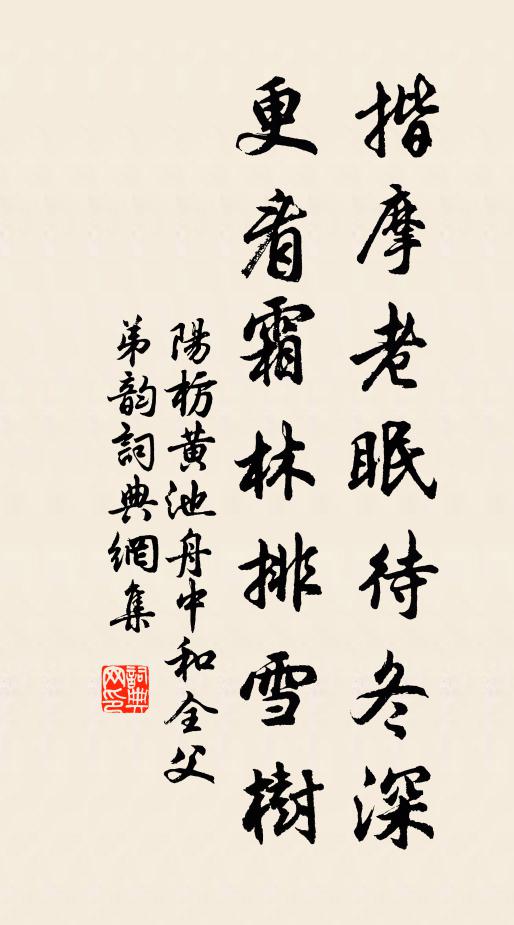 揩摩老眠待冬深
更看霜林排雪樹
陽枋黄池舟中和全父
弟韵詞典網集
詞典網印